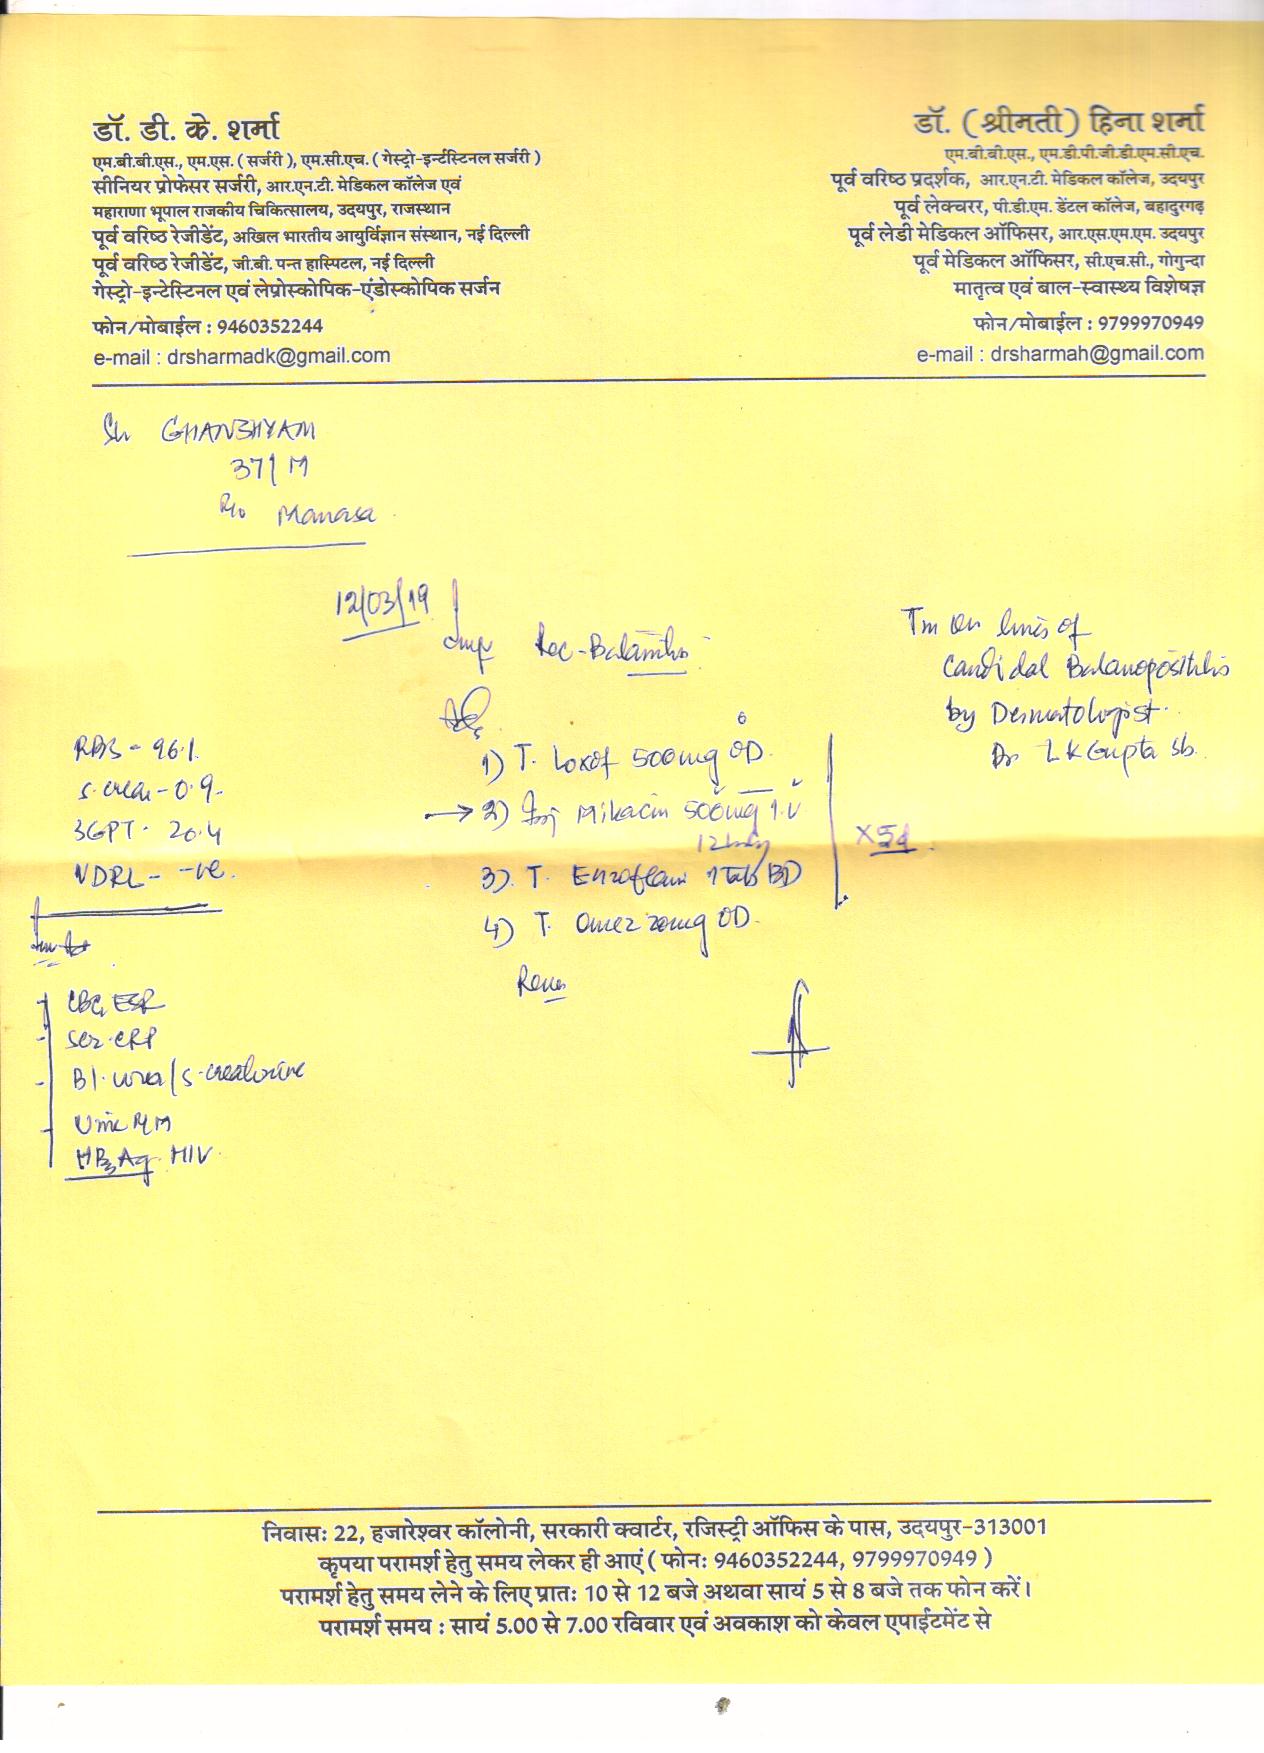 डॉ. डी. के. शर्मा
एम.बी.बी.एस., एम.एस. ( सर्जरी ), एम.सी.एच. ( गेस्ट्रो-इन्टेस्टिनल सर्जरी )
सीनियर प्रोफेसर सर्जरी, आर.एन.टी. मेडिकल कॉलेज एवं
महाराणा भूपाल राजकीय चिकित्सालय, उदयपुर, राजस्थान
पूर्व वरिष्ठ रेजीडेंट, अखिल भारतीय आयुर्विज्ञान संस्थान, नई दिल्ली
पूर्व वरिष्ठ रेजीडेंट, जी.बी. पन्त हास्पिटल, नई दिल्ली
गेस्ट्रो-इन्टेस्टिनल एवं लेप्रोस्कोपिक-एंडोस्कोपिक सर्जन
फोन/मोबाईल : 9460352244
e-mail : drsharmadk@gmail.com
डॉ. ( श्रीमती ) हिना शर्मा
एम.बी.बी.एस., एम.डी.पी.जी.डी.एम.सी.एच.
पूर्व वरिष्ठ प्रदर्शक, आर.एन.टी. मेडिकल कॉलेज, उदयपुर
पूर्व लेक्चरर, पी.डी.एम. डेंटल कॉलेज, बहादुरगढ़
पूर्व लेडी मेडिकल ऑफिसर, आर.एस.एम.एम. उदयपुर
पूर्व मेडिकल ऑफिसर, सी.एच.सी., गोगुन्दा
मातृत्व एवं बाल-स्वास्थ्य विशेषज्ञ
फोन/मोबाईल : 9799970949
e-mail : drsharmah@gmail.com
Sh GHANSHYAM
37/M
R/o Manasa
12/03/19
Imp Rec-Balanitis
Tm on lines of
Candidal Balanoposthitis
by Dermatologist
Dr L K Gupta Sb.
RBS - 96.1
S. creat - 0.9
SGPT - 20.4
VDRL - -ve
1) T. Loxof 500mg OD
2) Inj Mikacin 500mg I.V
12hrly
3) T. Enzoflam 1 tab BD
4) T. Omez 20mg OD
X 5d
CBC, ESR
Ser. CRP
Bl. urea/S. creatinine
Urine R/M
HBsAg HIV
निवासः 22, हजारेश्वर कॉलोनी, सरकारी क्वार्टर, रजिस्ट्री ऑफिस के पास, उदयपुर-313001
कृपया परामर्श हेतु समय लेकर ही आएं ( फोनः 9460352244, 9799970949 )
परामर्श हेतु समय लेने के लिए प्रातः 10 से 12 बजे अथवा सायं 5 से 8 बजे तक फोन करें।
परामर्श समय : सायं 5.00 से 7.00 रविवार एवं अवकाश को केवल एपाईंटमेंट से